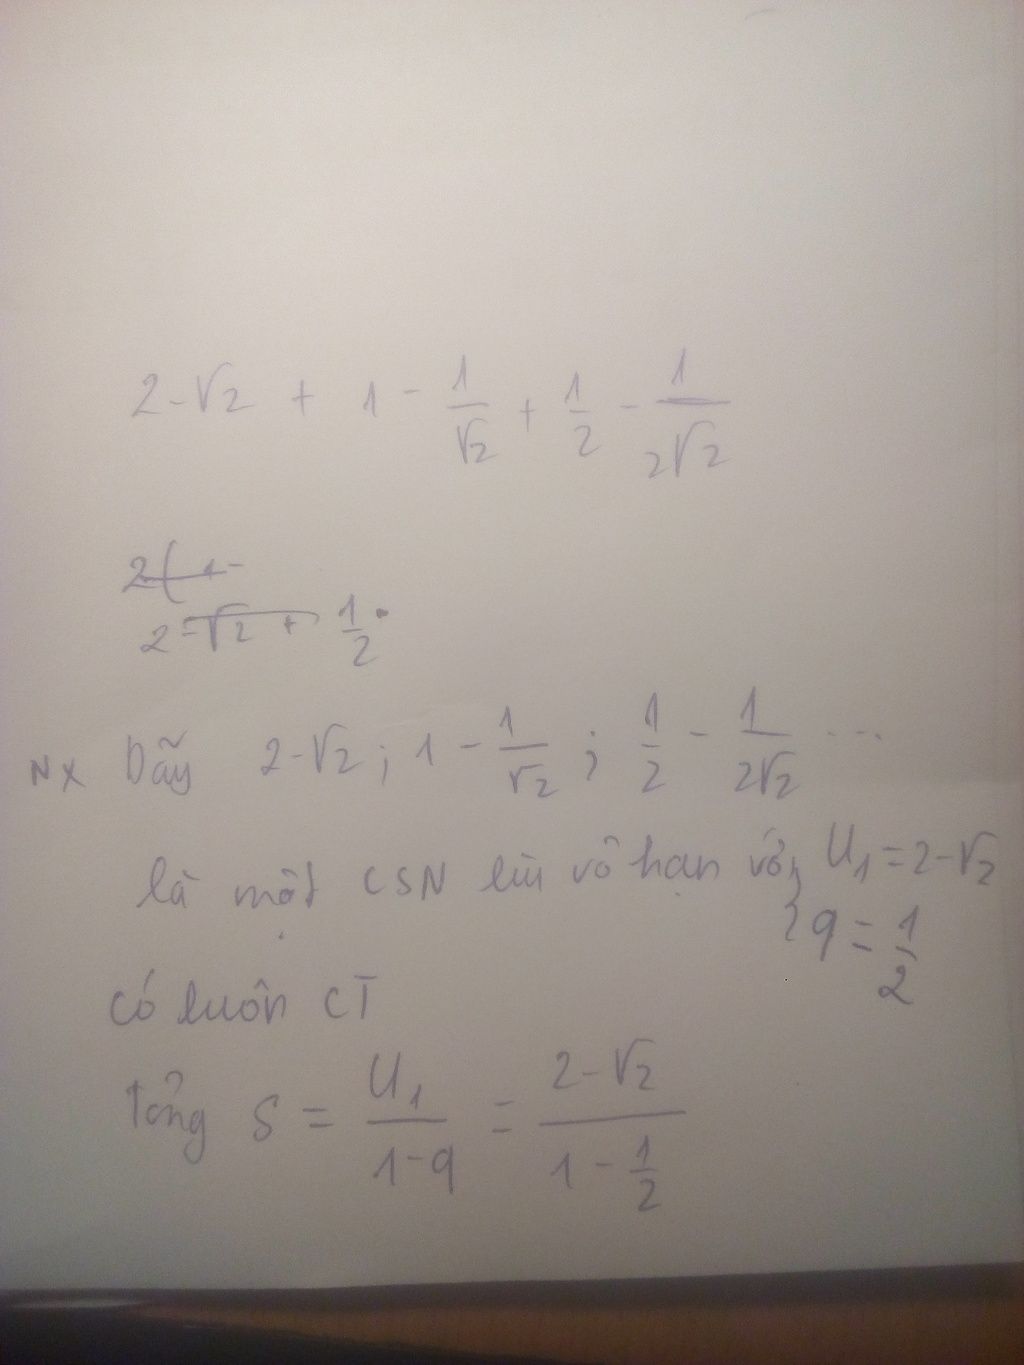 2-√2 + 1 - 1/√2 + 1/2 - 1/2√2
2(1-
2-√2 + 1/2.
NX Dãy 2-√2 ; 1 - 1/√2 ; 1/2 - 1/2√2 ...
là một CSN lùi vô hạn với { U₁ = 2-√2
q = 1/2
Có luôn CT
Tổng S = U₁/(1-q) = (2-√2)/(1 - 1/2)